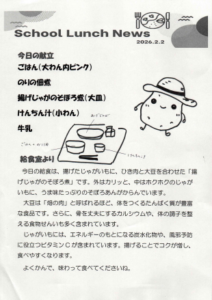 School Lunch News
2026.2.2
今日の献立
ごはん(大わん内ピンク)
のりの佃煮
揚げじゃがのそぼろ煮(大皿)
けんちん汁(小わん)
牛乳
給食室より
今日の給食は、揚げたじゃがいもに、ひき肉と大豆を合わせた「揚
げじゃがのそぼろ煮」です。外はカリッと、中はホクホクのじゃが
いもに、うま味たっぷりのそぼろあんがからんでいます。
大豆は「畑の肉」と呼ばれるほど、体をつくるたんぱく質が豊富
な食品です。さらに、骨を丈夫にするカルシウムや、体の調子を整
える食物せんいも多く含まれています。
じゃがいもには、エネルギーのもとになる炭水化物や、風邪予防
に役立つビタミンCが含まれています。揚げることでコクが増し、
食べやすくなります。
よくかんで、味わって食べてくださいね。